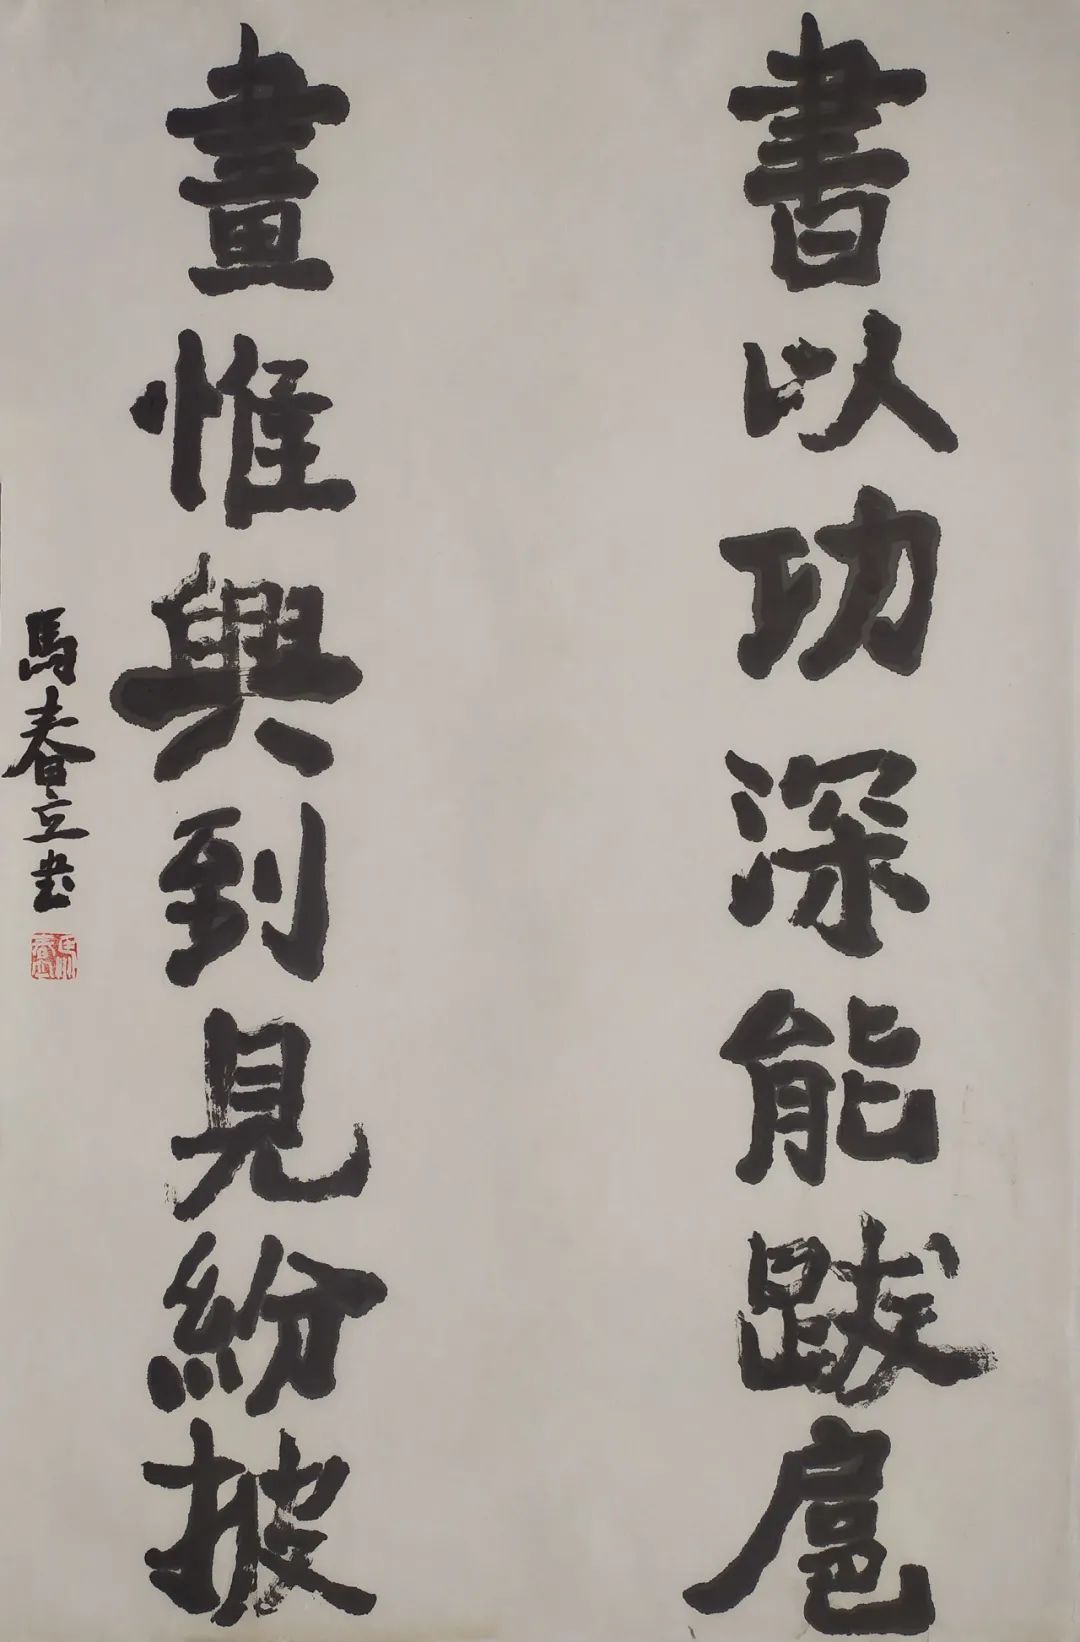 書以功深能跋扈
畫惟興到見紛披
馬春立書